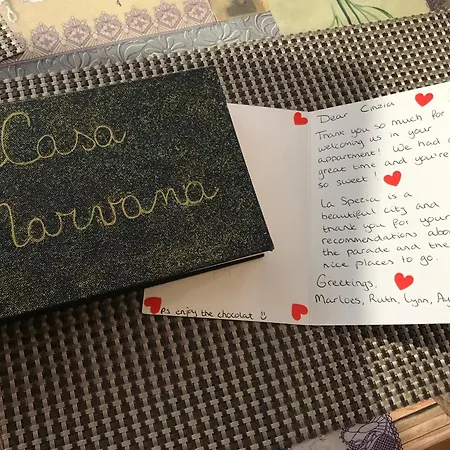 Casa
Marvana
Dear Cinzia
Thank you so much for
welcoming us in your
appartment! We had a
great time and you're
so sweet!
La Spezia is a
beautiful city and
thank you for your
recommendations about
the parade and the
nice places to go.
Greetings,
Marloes, Ruth, Lynn,
Ps enjoy the chocolat